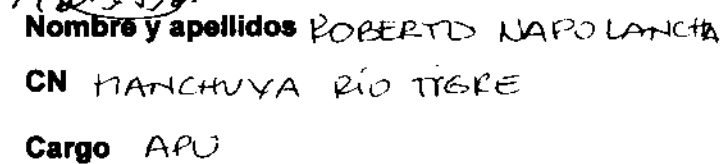 Nombre y apellidos ROBERTO NAPO LANCHA
CN MANCHUYA RÍO TIGRE
Cargo APU